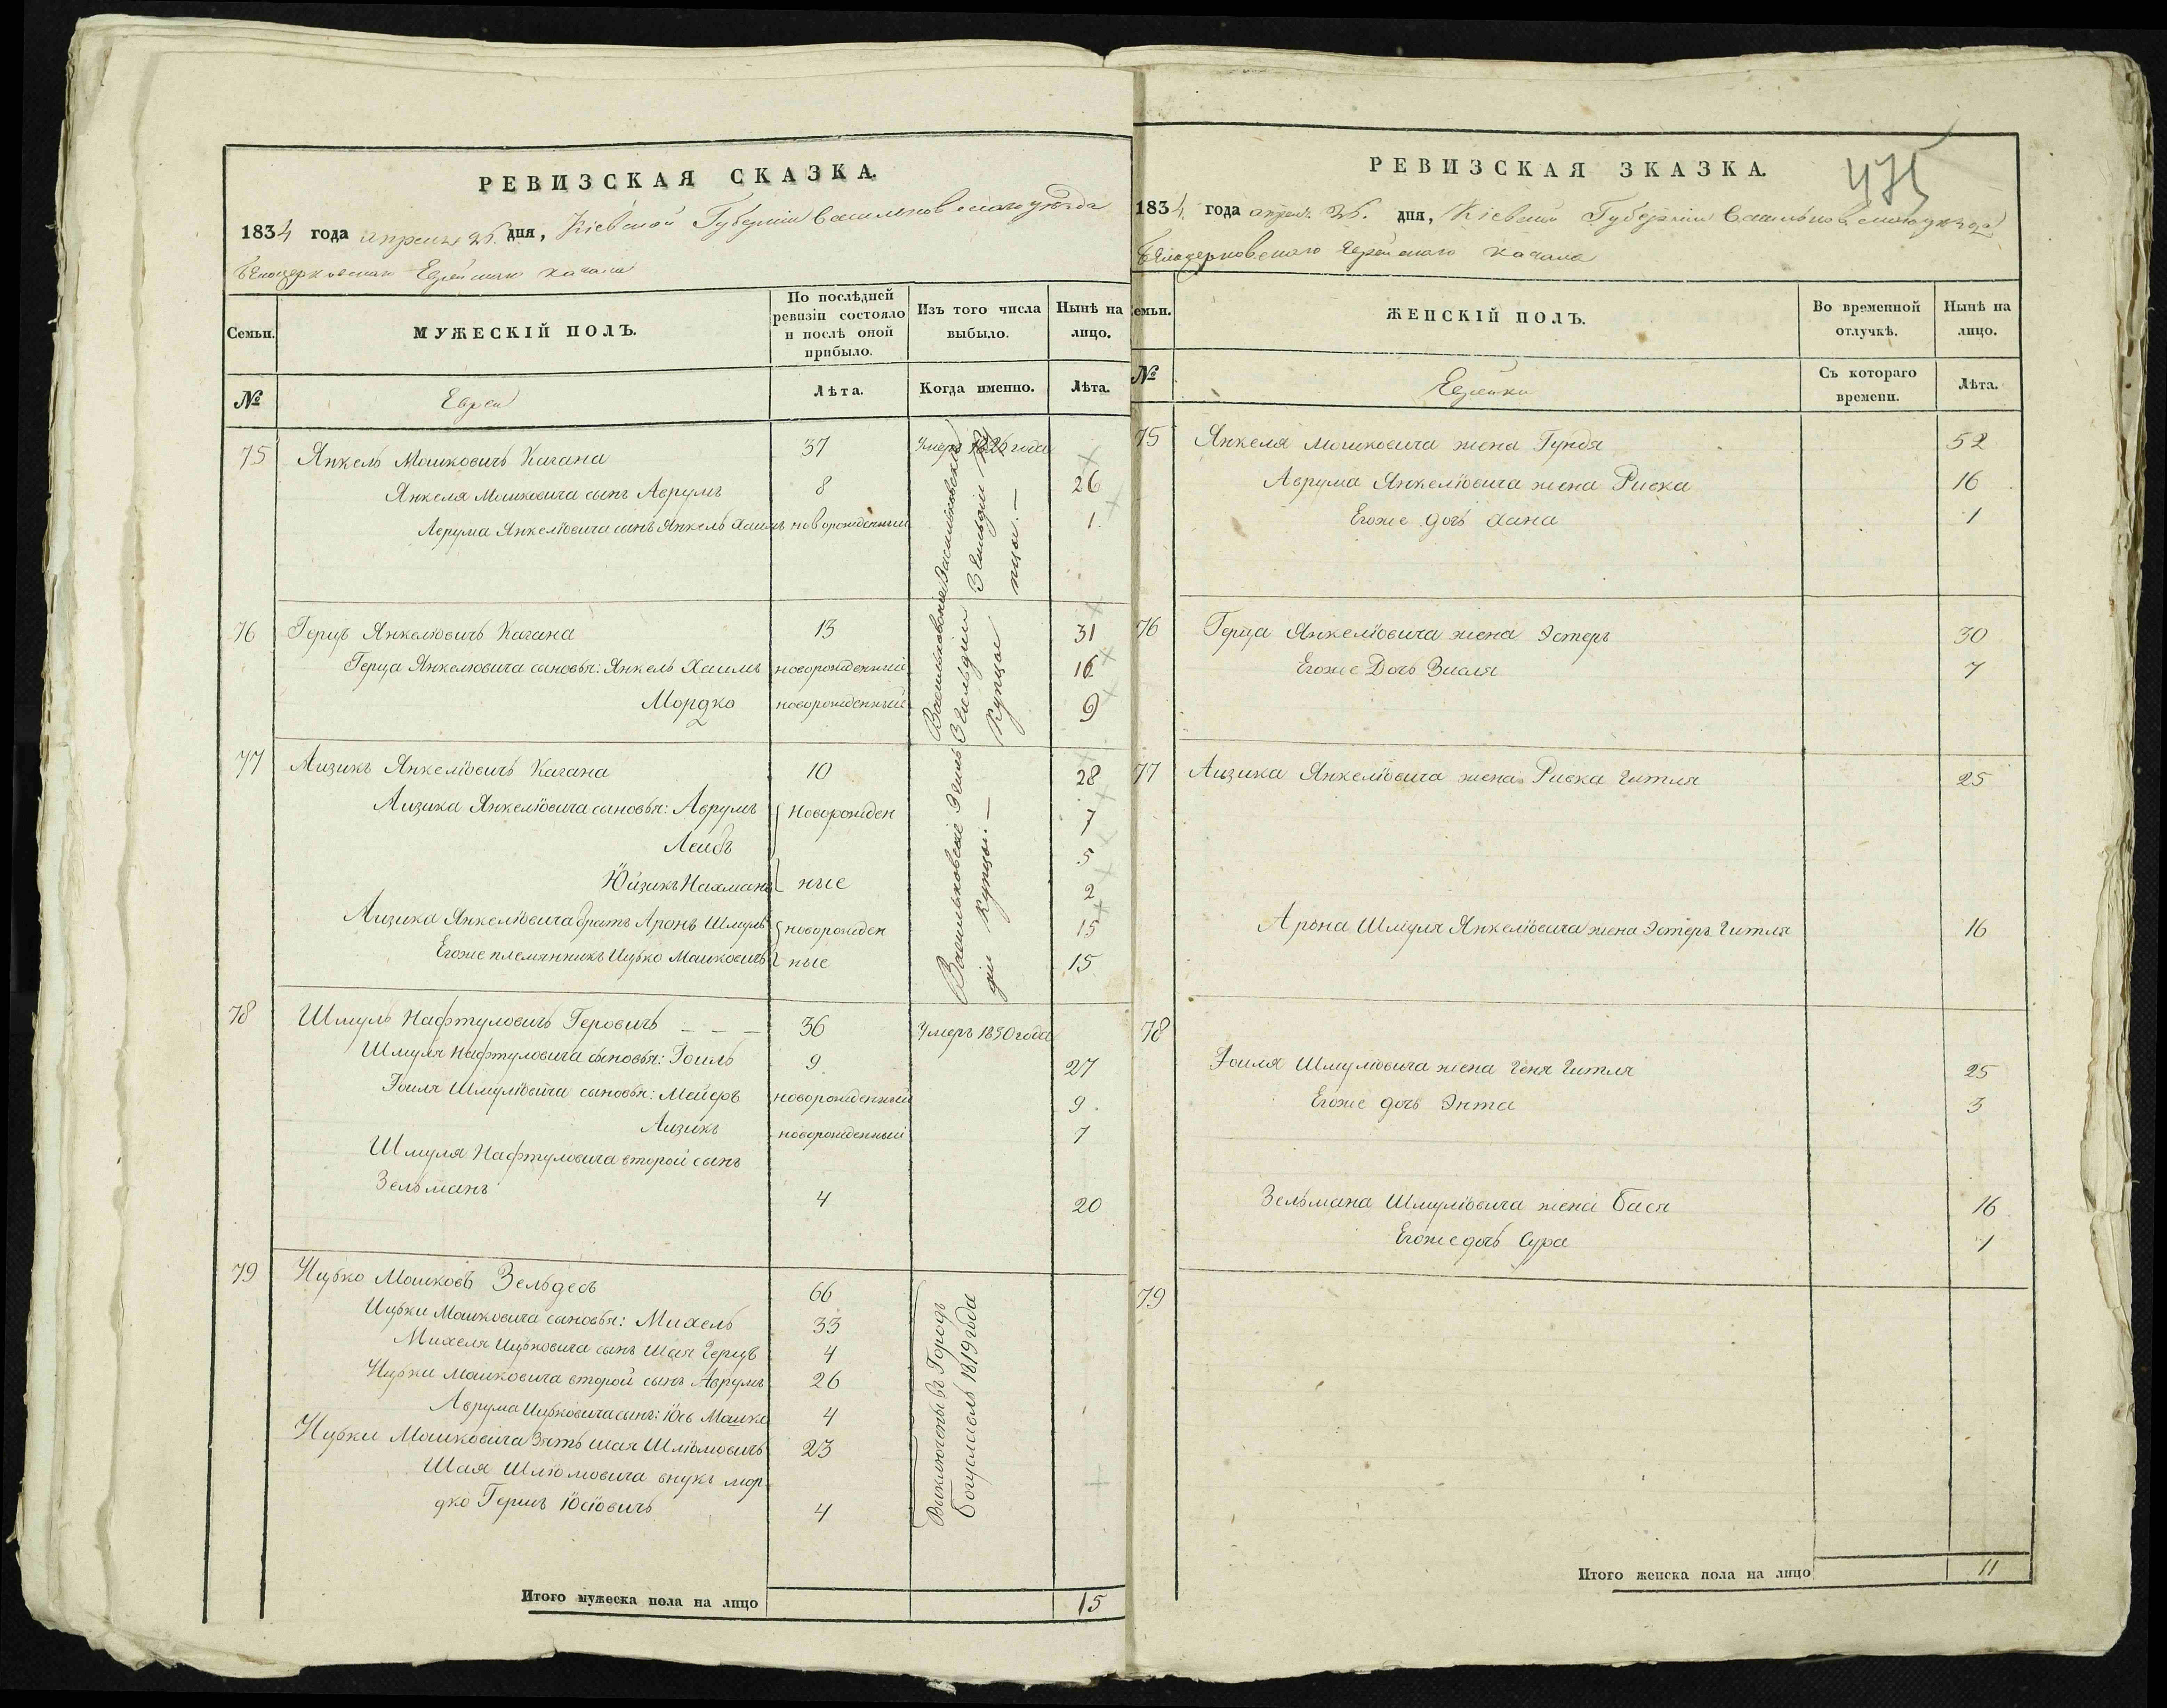 РЕВИЗСКАЯ СКАЗКА.
1834 года апреля 26. дня, Кіевской Губерніи Васильковскаго уѣзда
Бѣлоцерковскаго Еврейскаго кагала
Семьи.
МУЖЕСКІЙ ПОЛЪ.
По послѣдней ревизіи состояло и послѣ оной прибыло.
Изъ того числа выбыло.
Нынѣ на лицо.
№
Евреи
Лѣта.
Когда именно.
Лѣта.
75 Янкель Мошковичъ Кагана 37 Умеръ года
Янкеля Мошковича сынъ Аврумъ 8 26
Аврума Янкелiовича сынъ Янкель Хаимъ новорожденный 1.
Васильковскіе 3 Гильдіи Купцы. —
76 Герцъ Янкелiовичъ Кагана 13 31
Герца Янкелiовича сыновья: Янкель Хаимъ новорожденный 16
Мордко новорожденный 9
Васильковскіе 3 Гильдіи Купцы
77 Аизикъ Янкелiовичъ Кагана 10 28
Аизика Янкелiовича сыновья: Аврумъ новорожден 7
Леибъ 5
Нахманъ ные 2
Аизика Янкелiовича братъ Аронъ Шмуль новорожден 15
Егоже племянникъ Ицько Мошковичъ ные 15
Васильковскіе Гильдіи Купцы. —
78 Шмуль Нафтуловичъ Геровичъ — — — 36 Умеръ 1830 года
Шмуля Нафтуловича сыновья: Іоиль 9 27
Іоиля Шмулiовича сыновья: Мейеръ новорожденный 9.
Аизикъ новорожденный 7
Шмуля Нафтуловича второй сынъ
Зельманъ 4 20
79 Ицько Мошковъ Зельдесъ 66
Ицьки Мошковича сыновья: Михель 33
Михеля Ицьковича сынъ Шая Герцъ 4
Ицьки Мошковича второй сынъ Аврумъ 26
Аврума Ицьковича сынъ: Iось Мошка 4
Ицьки Мошковича зять Шая Шлiомовичъ 23
Шая Шлiомовича внукъ Мор-
дко Гершъ Iосiовичъ 4
Выключены въ Городъ Богуславль 1819 года
Итого мужеска пола на лицо 15
475
РЕВИЗСКАЯ ЗКАЗКА.
1834 года апреля 26. дня, Кіевской Губерніи Васильковскаго уѣзда
Бѣлоцерковскаго Еврейскаго кагала
Семьи.
ЖЕНСКІЙ ПОЛЪ.
Во временной отлучкѣ.
Нынѣ на лицо.
№
Еврейки
Съ котораго времени.
Лѣта.
75 Янкеля Мошковича жена Гундя 52
Аврума Янкелiовича жена Ривка 16
Егоже дочь Хана 1
76 Герца Янкелiовича жена Эстеръ 30
Егоже Дочь Зисля 7
77 Аизика Янкелiовича жена Ривка Гитля 25
Арона Шмуля Янкелiовича жена Эстеръ Гитля 16
78
Іоиля Шмулiовича жена Геня Гитля 25
Егоже дочь Энта 3
Зельмана Шмулiовича жена Бася 16
Егоже дочь Сура 1
79
Итого женска пола на лицо 11